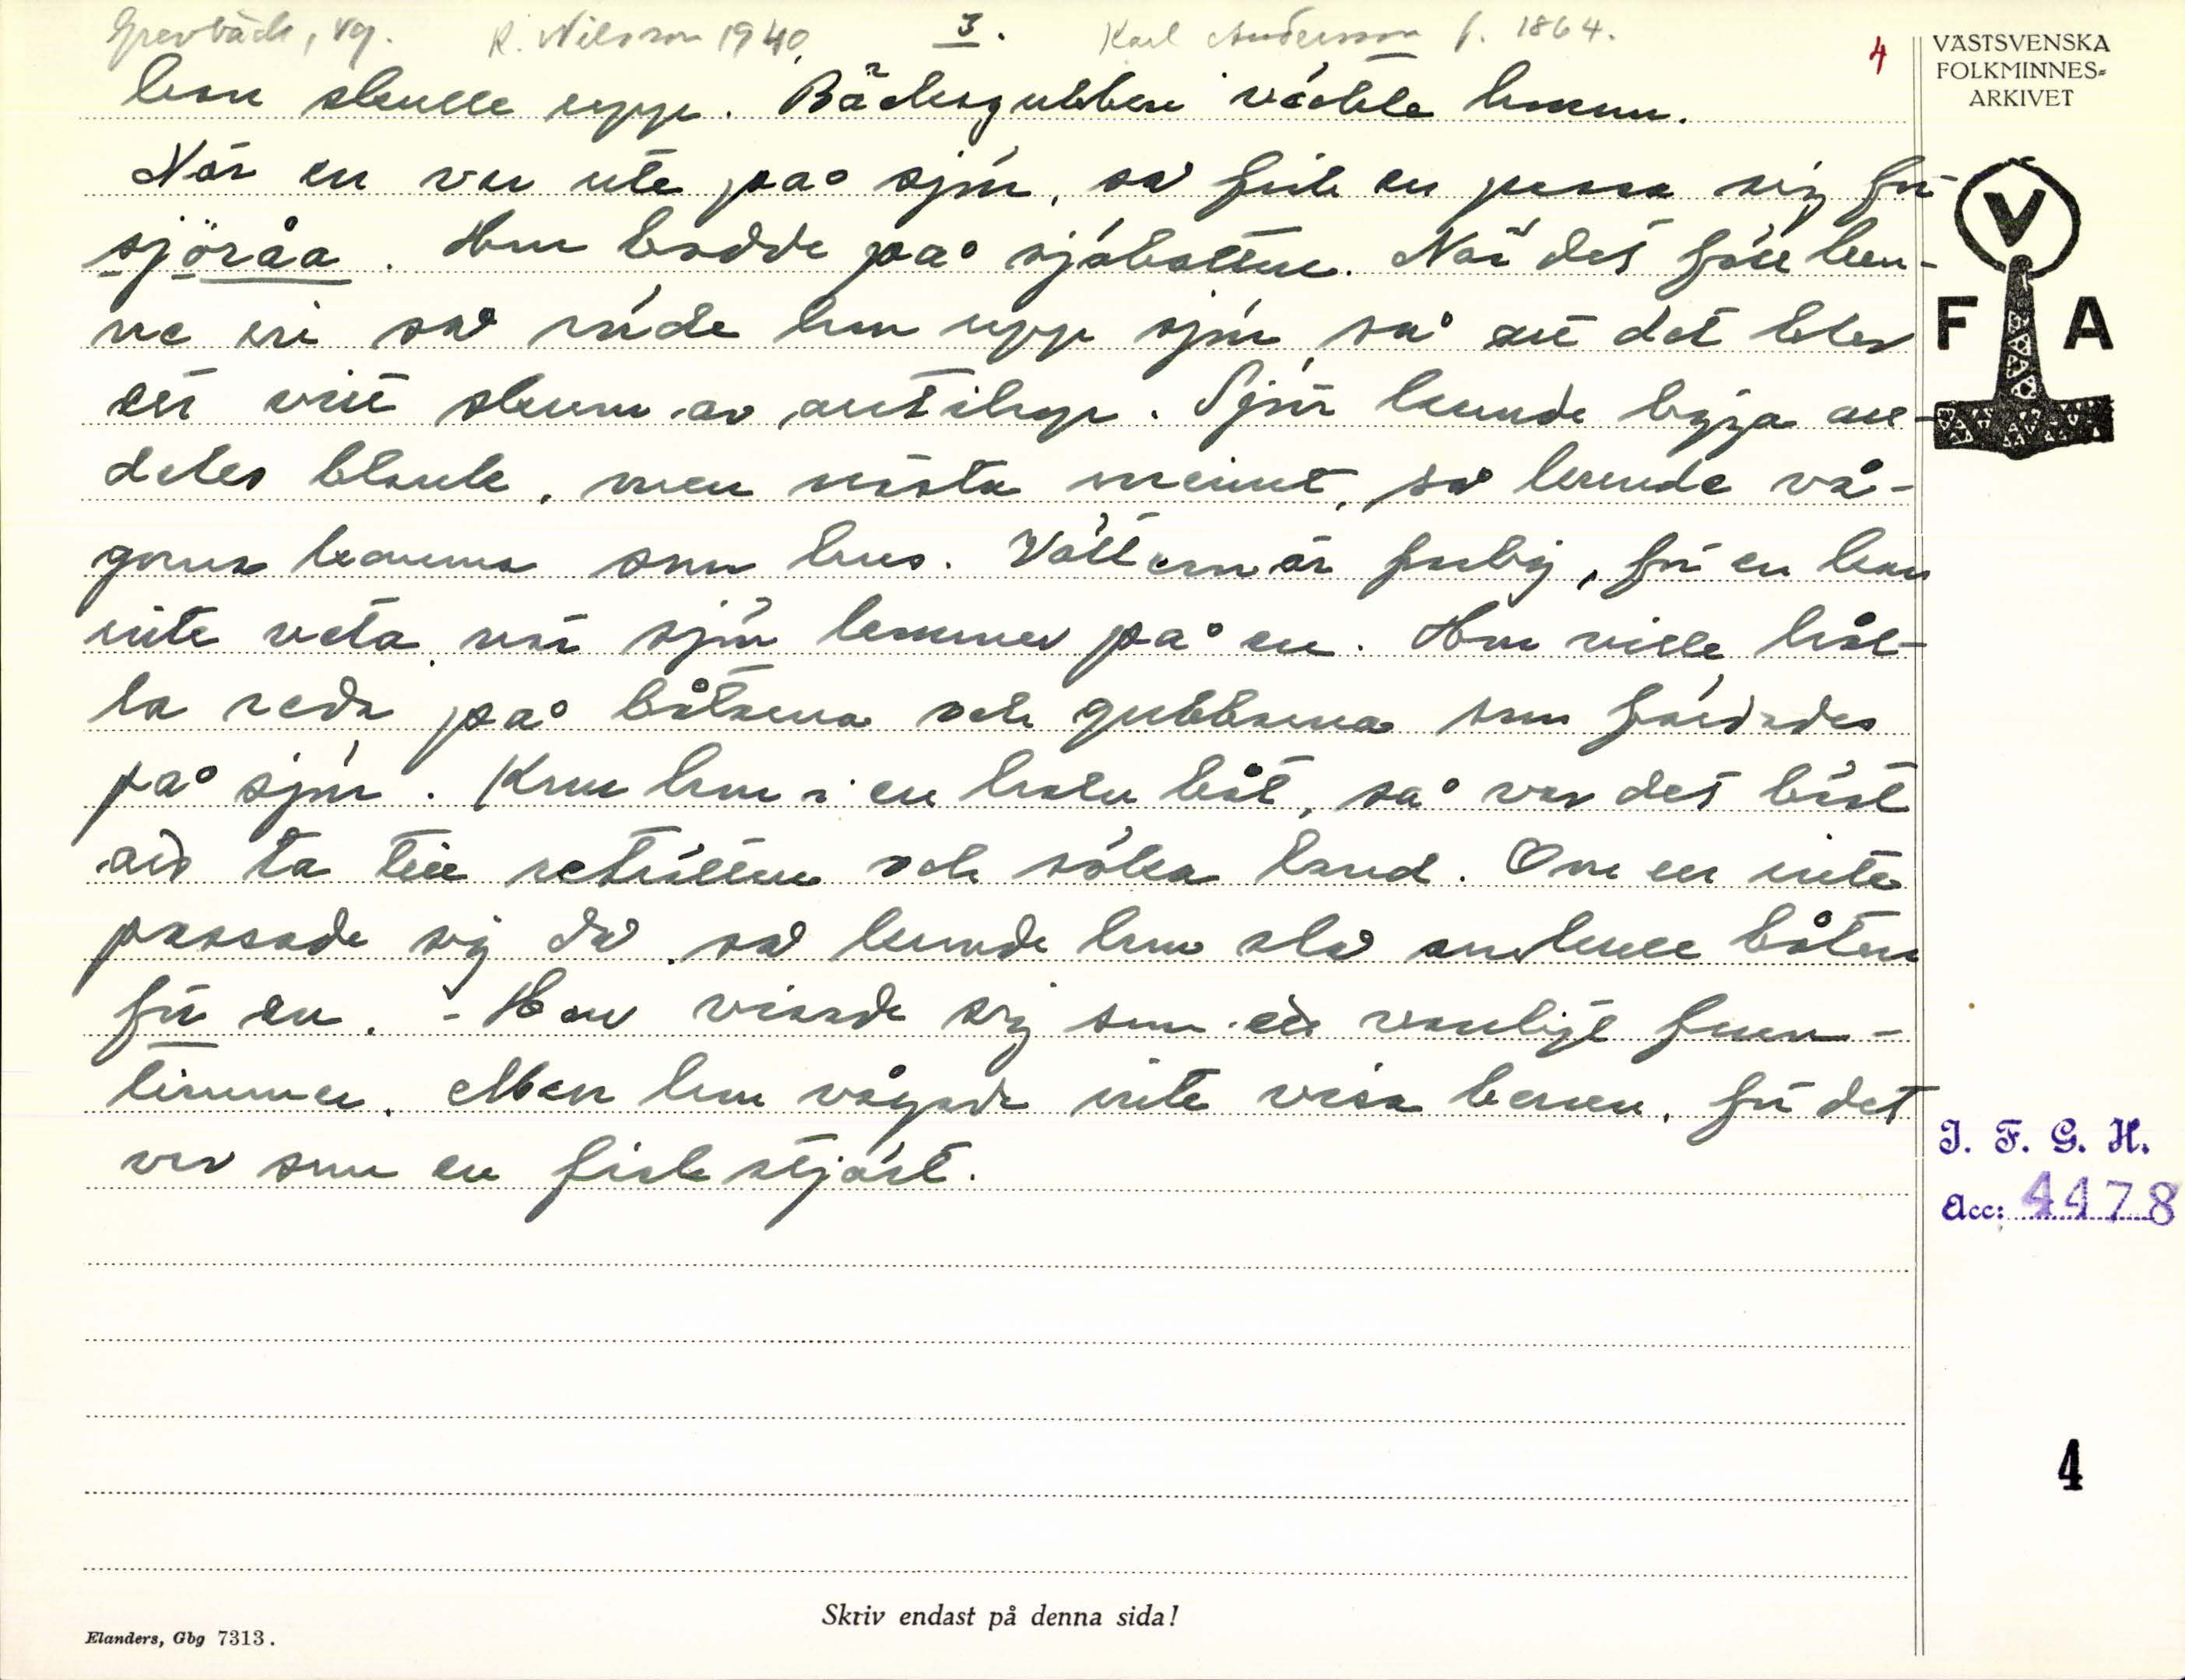 Grevbäck, Vg. K. Nilsson 1940. 3. Karl Andersson f. 1864. 4
han skulle upp. Bäckagubben väckte honom.
När en var ute på sjön, så fick en passa sig för
sjöråa. Hon bodde på sjöbotten. När det föll hen-
ne in så rörde hon upp sjön, så att det blev
ett vitt skum av alltihop. Sjön kunde ligga all-
deles blank, men nästa minut, så kunde vå-
gorna komma som hus. Vättern är farlig, för en kan
inte veta, när sjön kommer på en. Hon ville hål-
la reda på båtarna och gubbarna som färdades
på sjön. Kom hon i en halv båt, så var det bäst
att ta till reträtten och söka land. Om en inte
passade sig då, så kunde hon slå omkull båten
för en. - Hon visade sig som ett vanligt frun-
timmer. Men hon vågade inte visa benen, för det
var som en fiskstjärt.
VÄSTSVENSKA
FOLKMINNES-
ARKIVET
V
F A
I. F. G. H.
Acc: 4478
4
Skriv endast på denna sida!
Elanders, Gbg 7313.